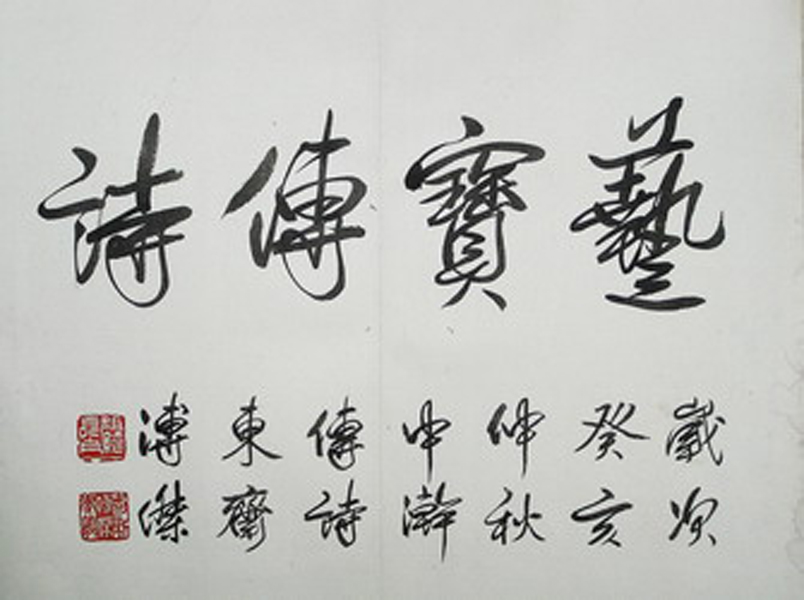 藝寶傳詩
歲次
癸亥
仲秋
中澣
傳詩
東齋
溥傑